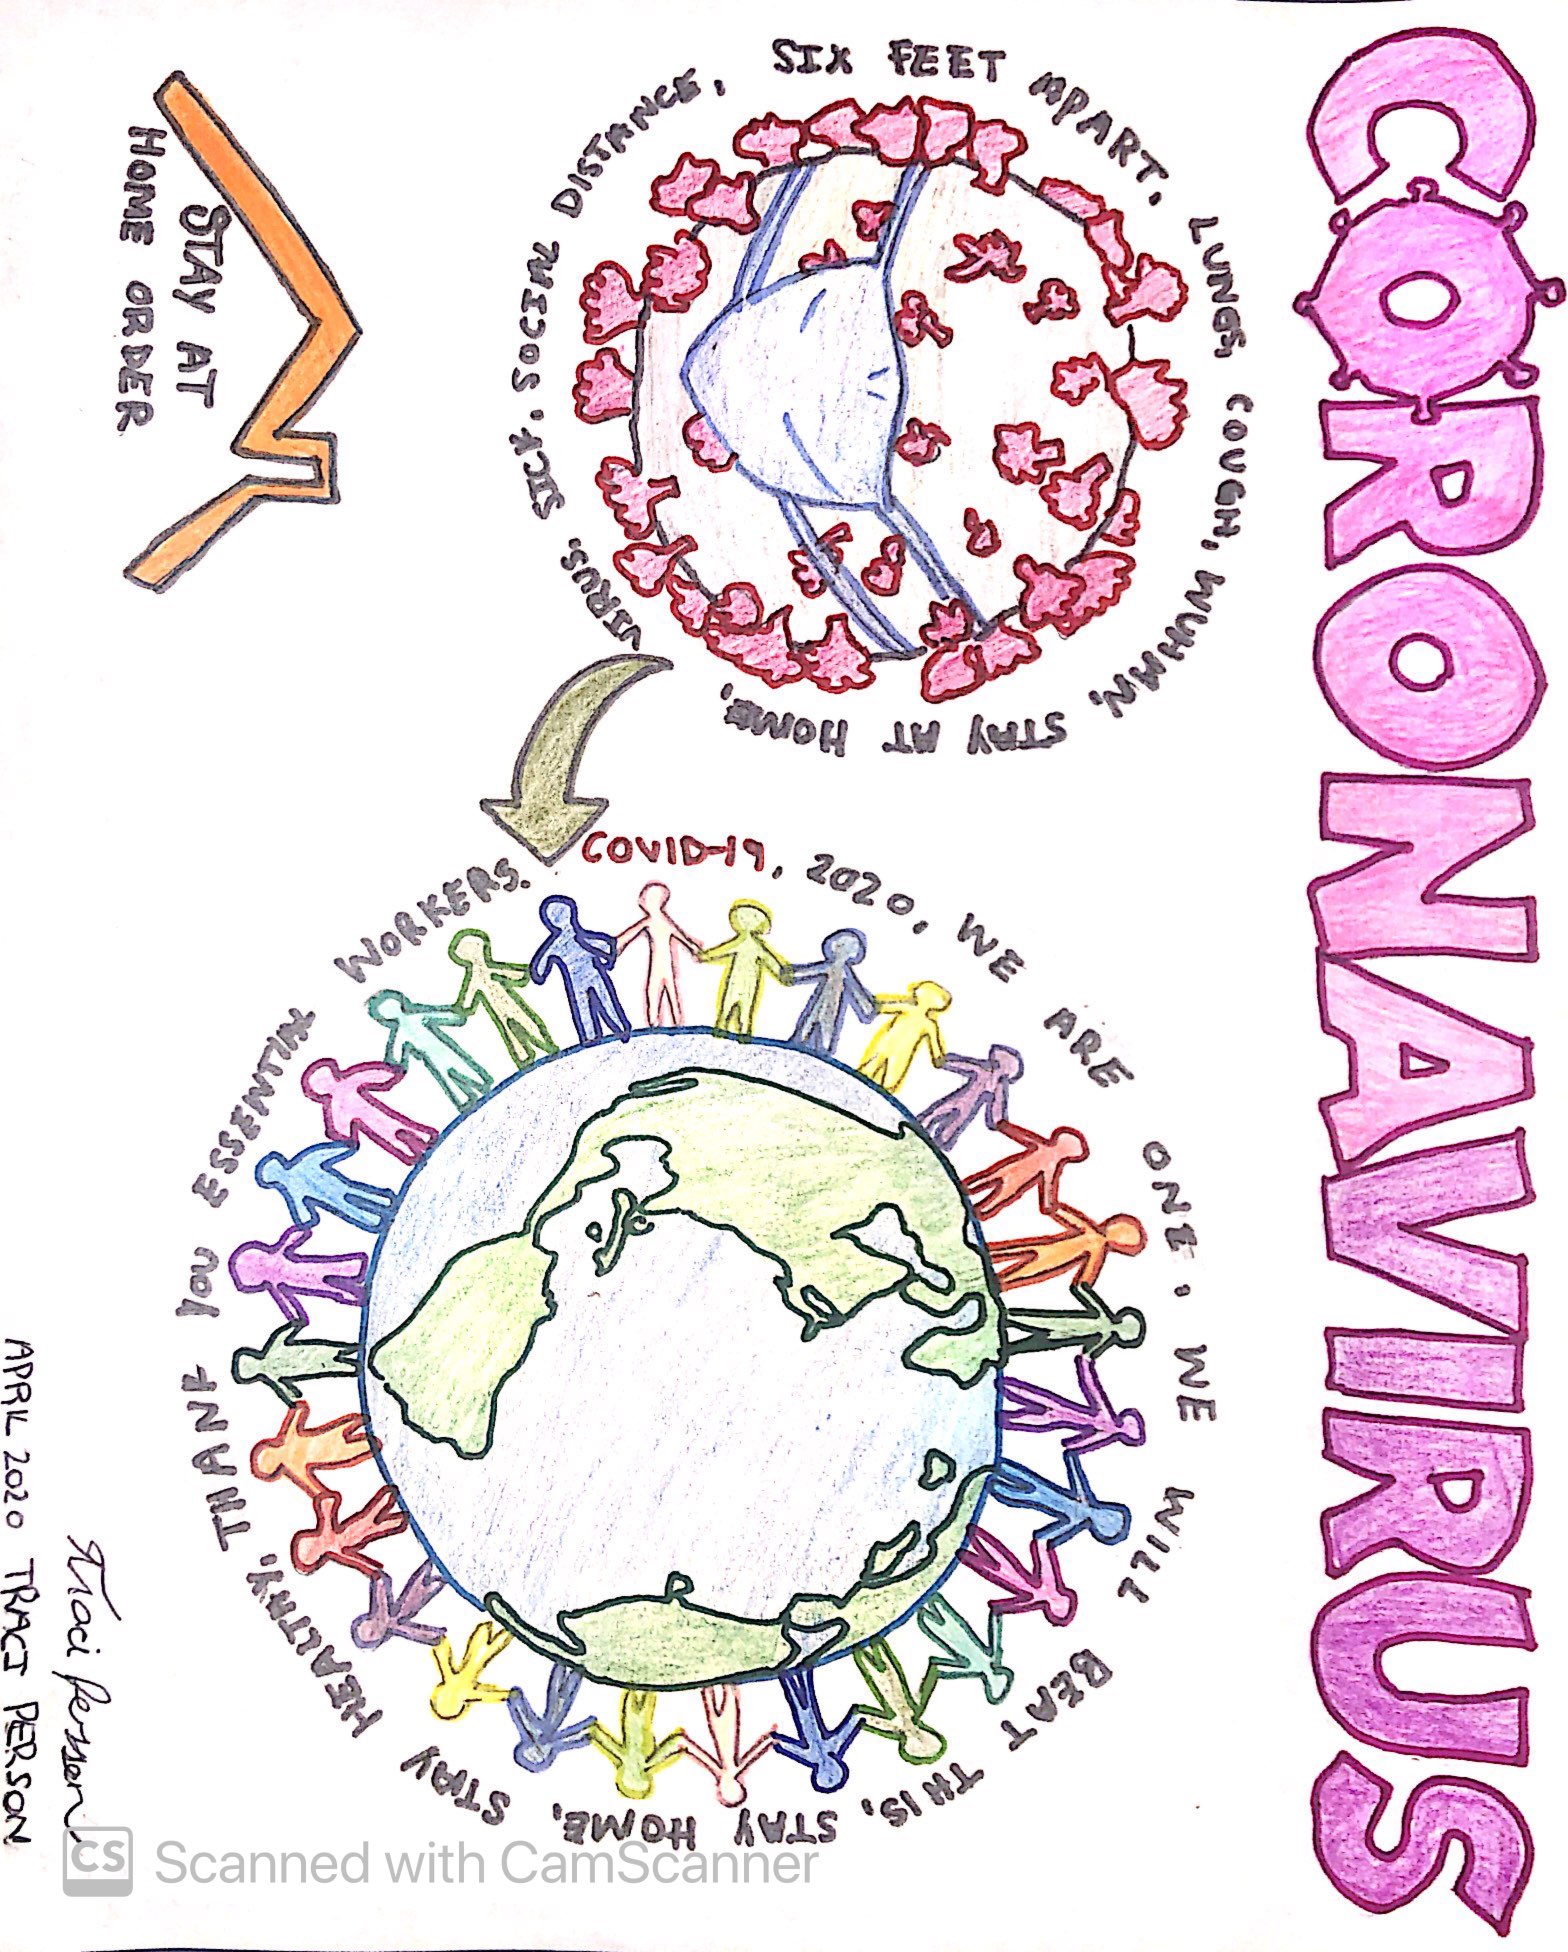 CORONAVIRUS
VIRUS. SICK. SOCIAL DISTANCE, SIX FEET APART, LUNGS, COUGH, WUHAN, STAY AT HOME,
COVID-19, 2020, WE ARE ONE. WE WILL BEAT THIS, STAY HOME, STAY HEALTHY, THANK YOU ESSENTIAL WORKERS.
STAY AT
HOME ORDER
Traci Person
APRIL 2020 TRACI PERSON
CS Scanned with CamScanner